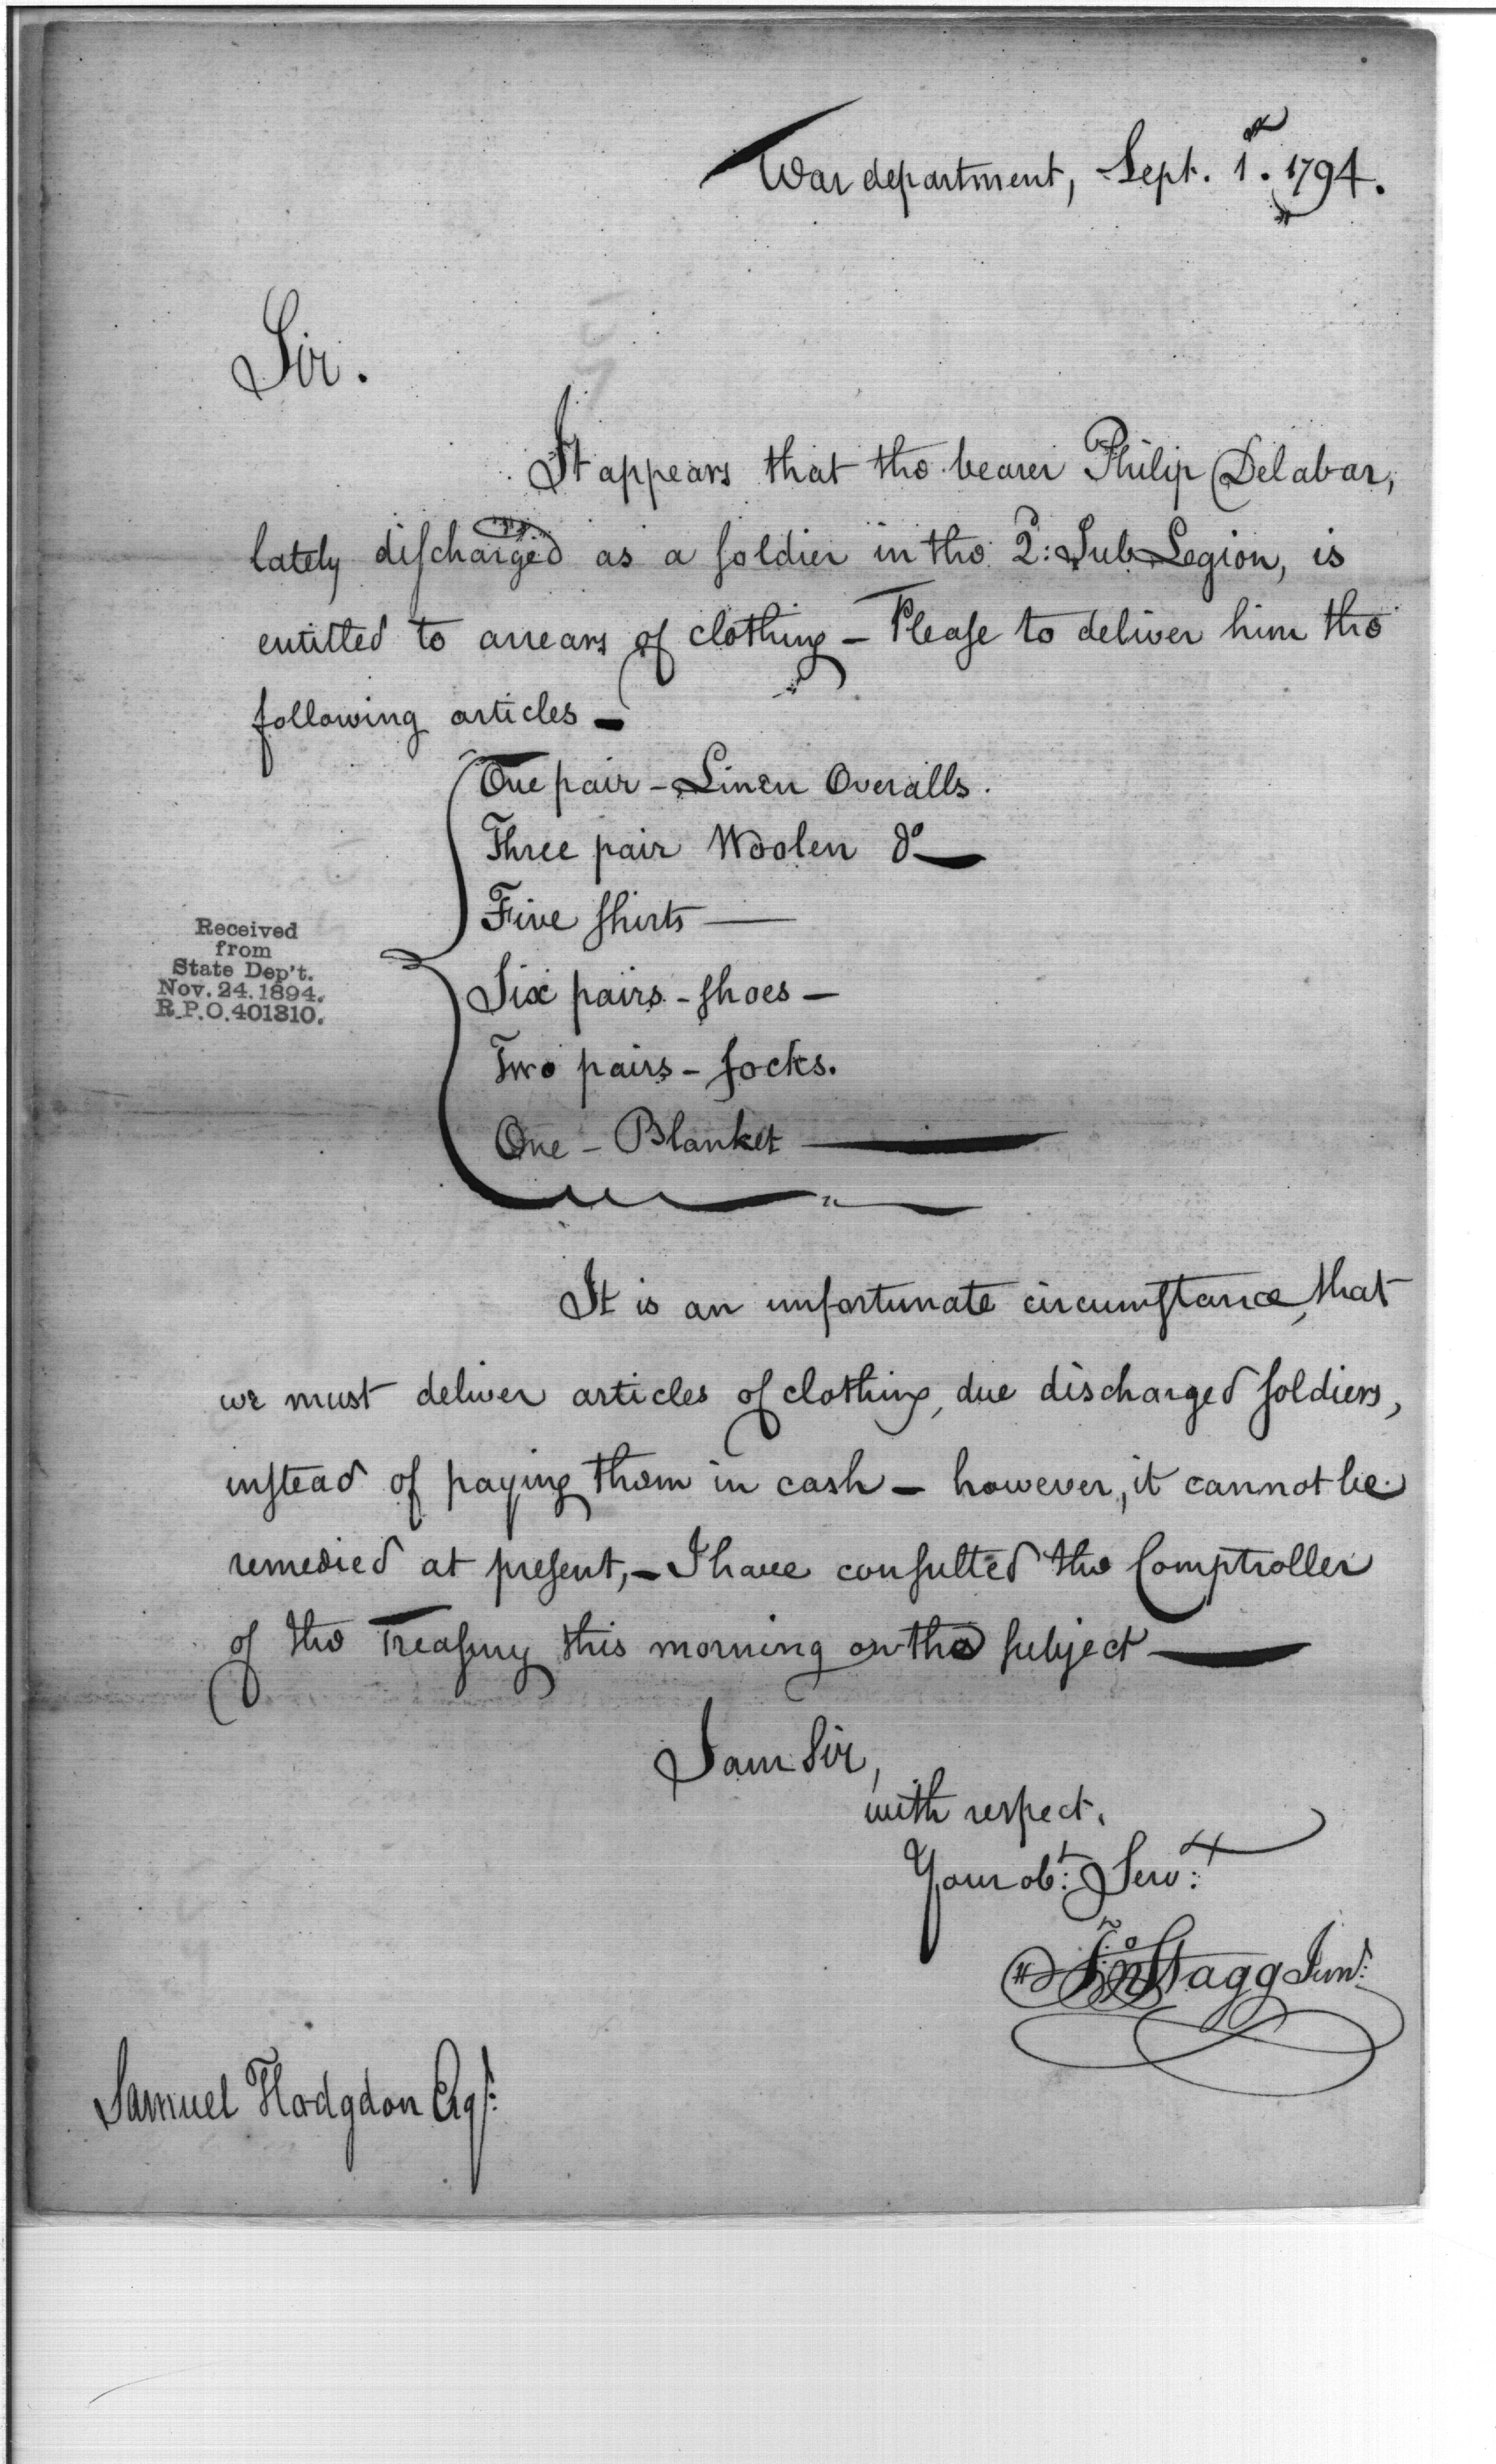 War department, Sept. 1st. 1794.
Sir.
It appears that the bearer Philip Delabar,
lately discharged as a soldier in the 2d: Sub Legion, is
entitled to arrears of clothing – Please to deliver him the
following articles –
One pair – Linen Overalls.
Three pair Woolen do –
Five shirts —
Six pairs – shoes –
Two pairs – socks.
One – Blanket —
Received
from
State Dep't.
Nov. 24. 1894.
R.P.O. 401310.
It is an unfortunate circumstance, that
we must deliver articles of clothing, due discharged soldiers,
instead of paying them in cash – however, it cannot be
remedied at present, – I have consulted the Comptroller
of the Treasury this morning on the subject —
I am Sir,
with respect.
Your obt: Servt:
Jno Stagg Junr:
Samuel Hodgdon Esqr: